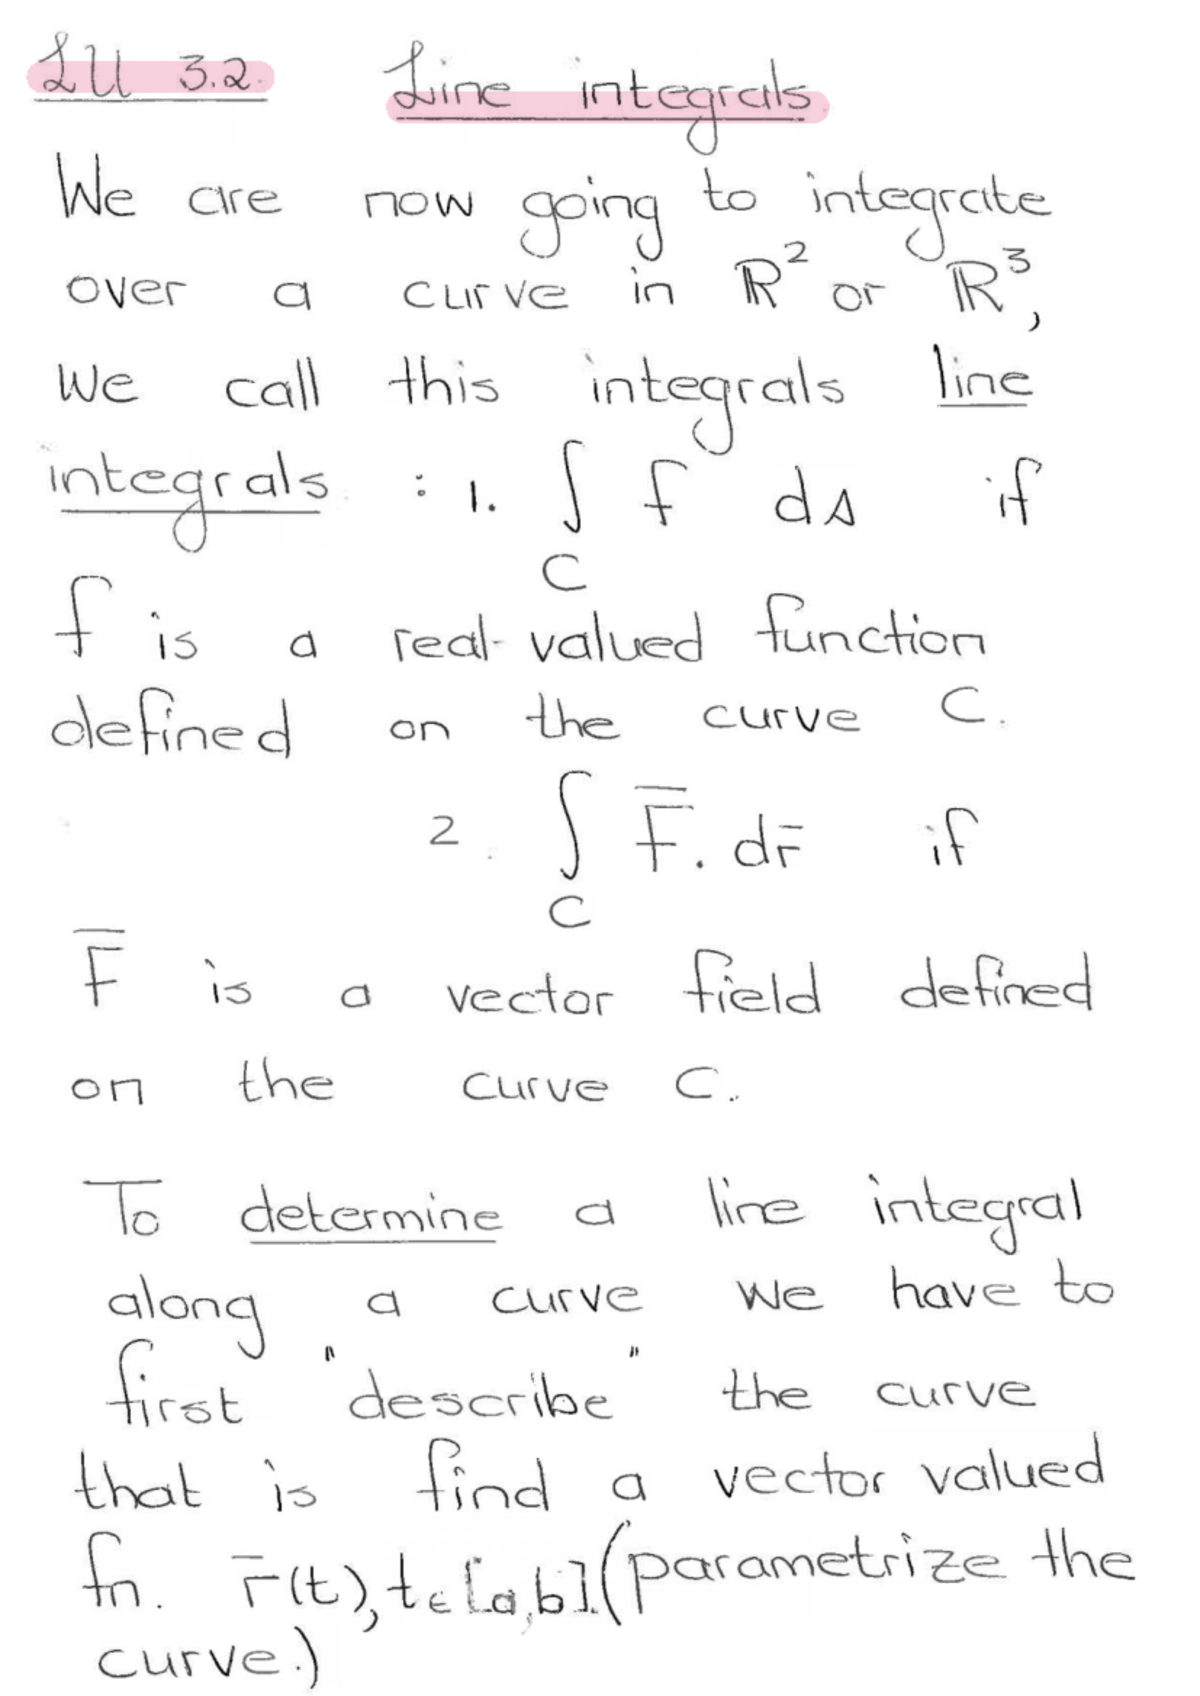 LU 3.2. Line integrals
We are now going to integrate
over a curve in ℝ² or ℝ³,
we call this integrals line
integrals : 1. ∫ f ds if
C
f is a real-valued function
defined on the curve C.
2. ∫ F̅. dr̅ if
C
F̅ is a vector field defined
on the curve C.
To determine a line integral
along a curve we have to
first "describe" the curve
that is find a vector valued
fn. r̅(t), t ∈ [a,b]. (parametrize the
curve.)